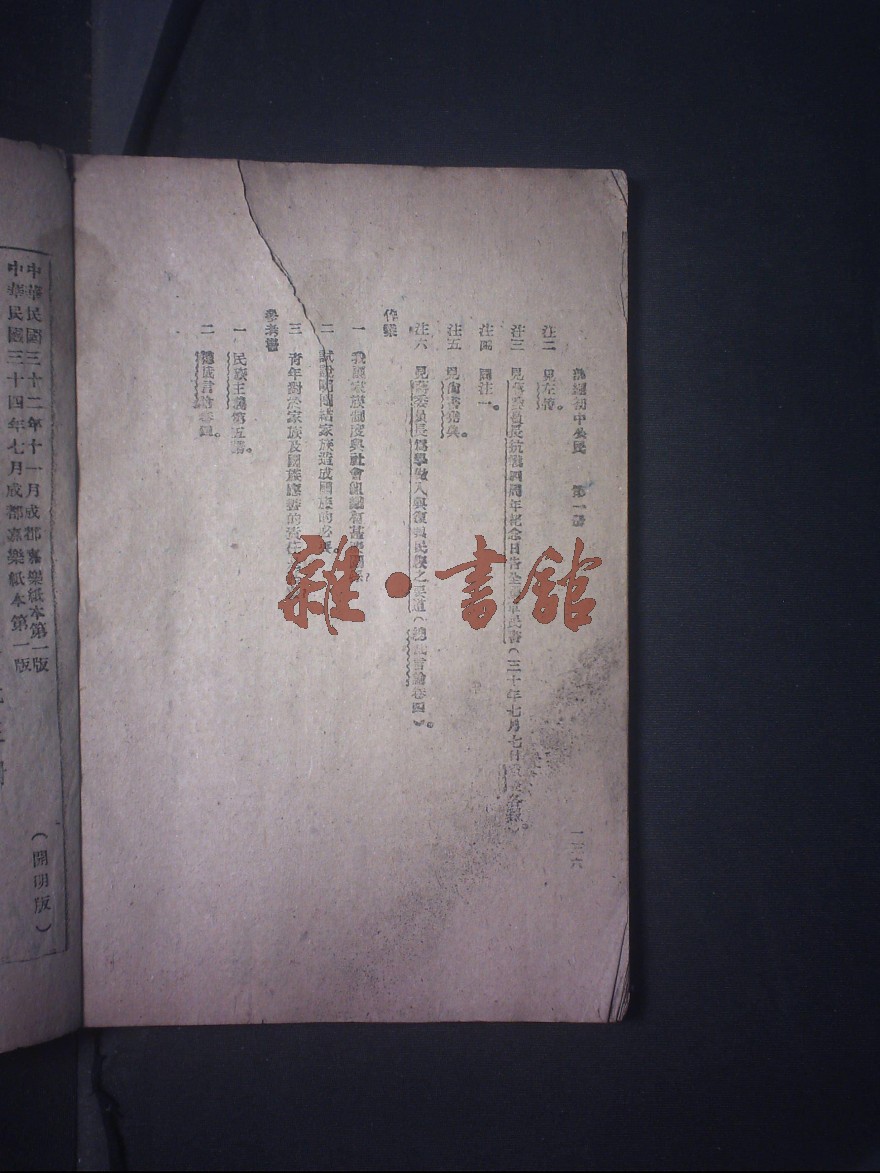 初中公民　第一冊
一三六
注二　見左傳。
注三　見蔣委員長抗戰四周年紀念日告全國軍民書（三十年七月七日
注四　同注一。
注五　見尙書堯典。
注六　見蔣委員長爲學做人與復興民族之要道（總裁言論卷四）。
作業
一　我國家族制度與社會組織有甚麼關係？
二　試說明團結家族造成國族的必要
三　青年對於家族及國族應盡的責任
參考書
一　民族主義第五講。
二　總裁言論卷四。
中華民國三十二年十一月成都嘉樂紙本第一版
中華民國三十四年七月成都嘉樂紙本第一版
（開明版）
雜·書館